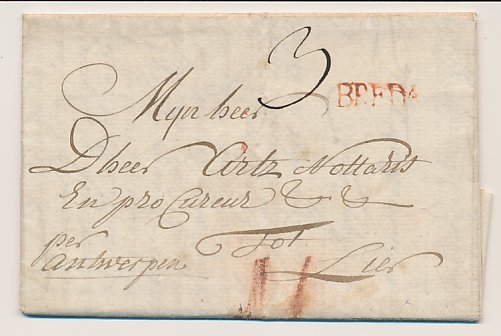 3
BREDA
Mijn heer
D heer Artz Nottaris
En procureur & &
per Tot
antwerpen Lier